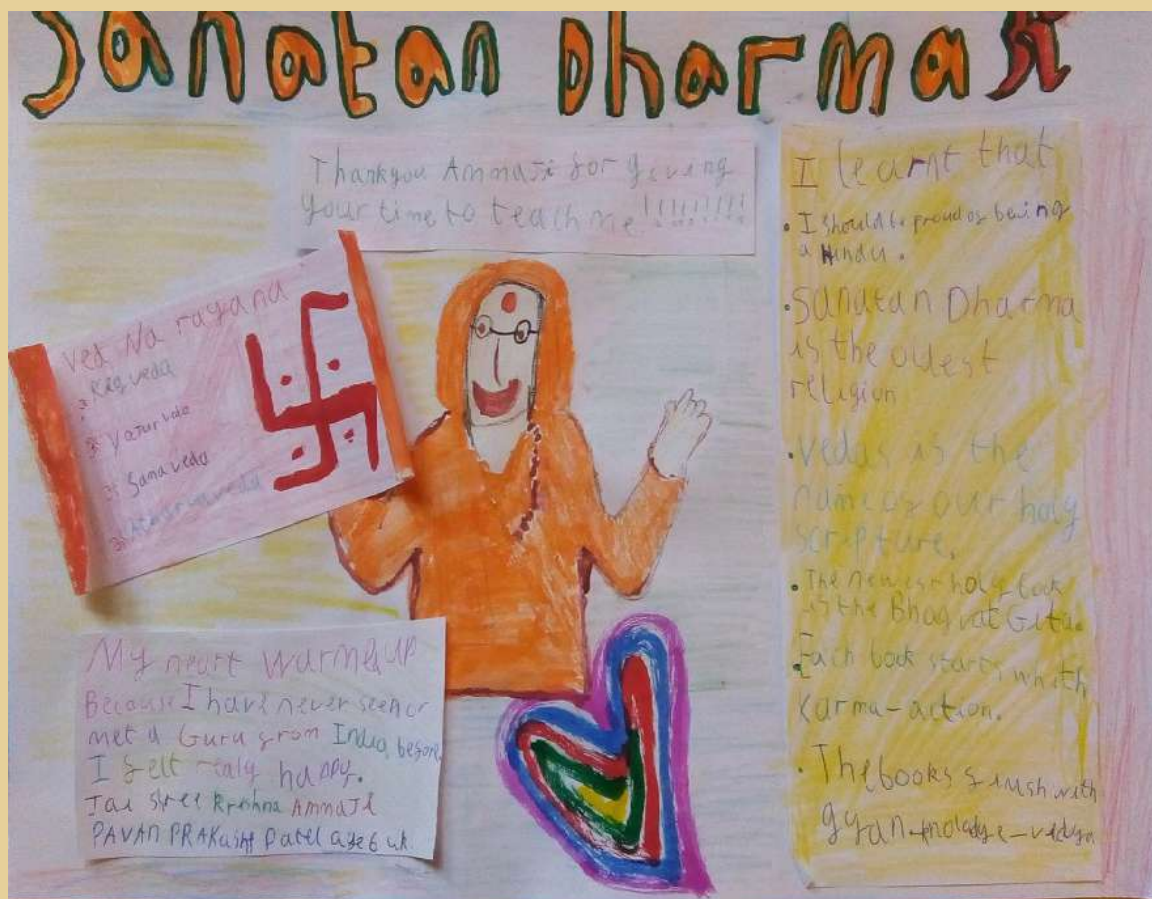 Sanatan Dharma
Thankyou AmmaJi for giving
your time to teach me!!!!!!!!!
Ved Na rayana
Regveda
Yajurveda
Samaveda
My heart warmed up
Because I have never seen or
met a Guru from India, before
I felt realy happy.
Jai Shree Krishna AmmaJi
PAVAN PRAKash Patel age 6 uk.
I learnt that
• I should be proud of being
a Hindu.
• Sanatan Dharma
is the oldest
religion
• Vedas is the
name of our holy
scripture.
• The newest holy book
is the Bhagvat Gita.
• Each book starts whith
Karma-action.
• The books finish with
gyan